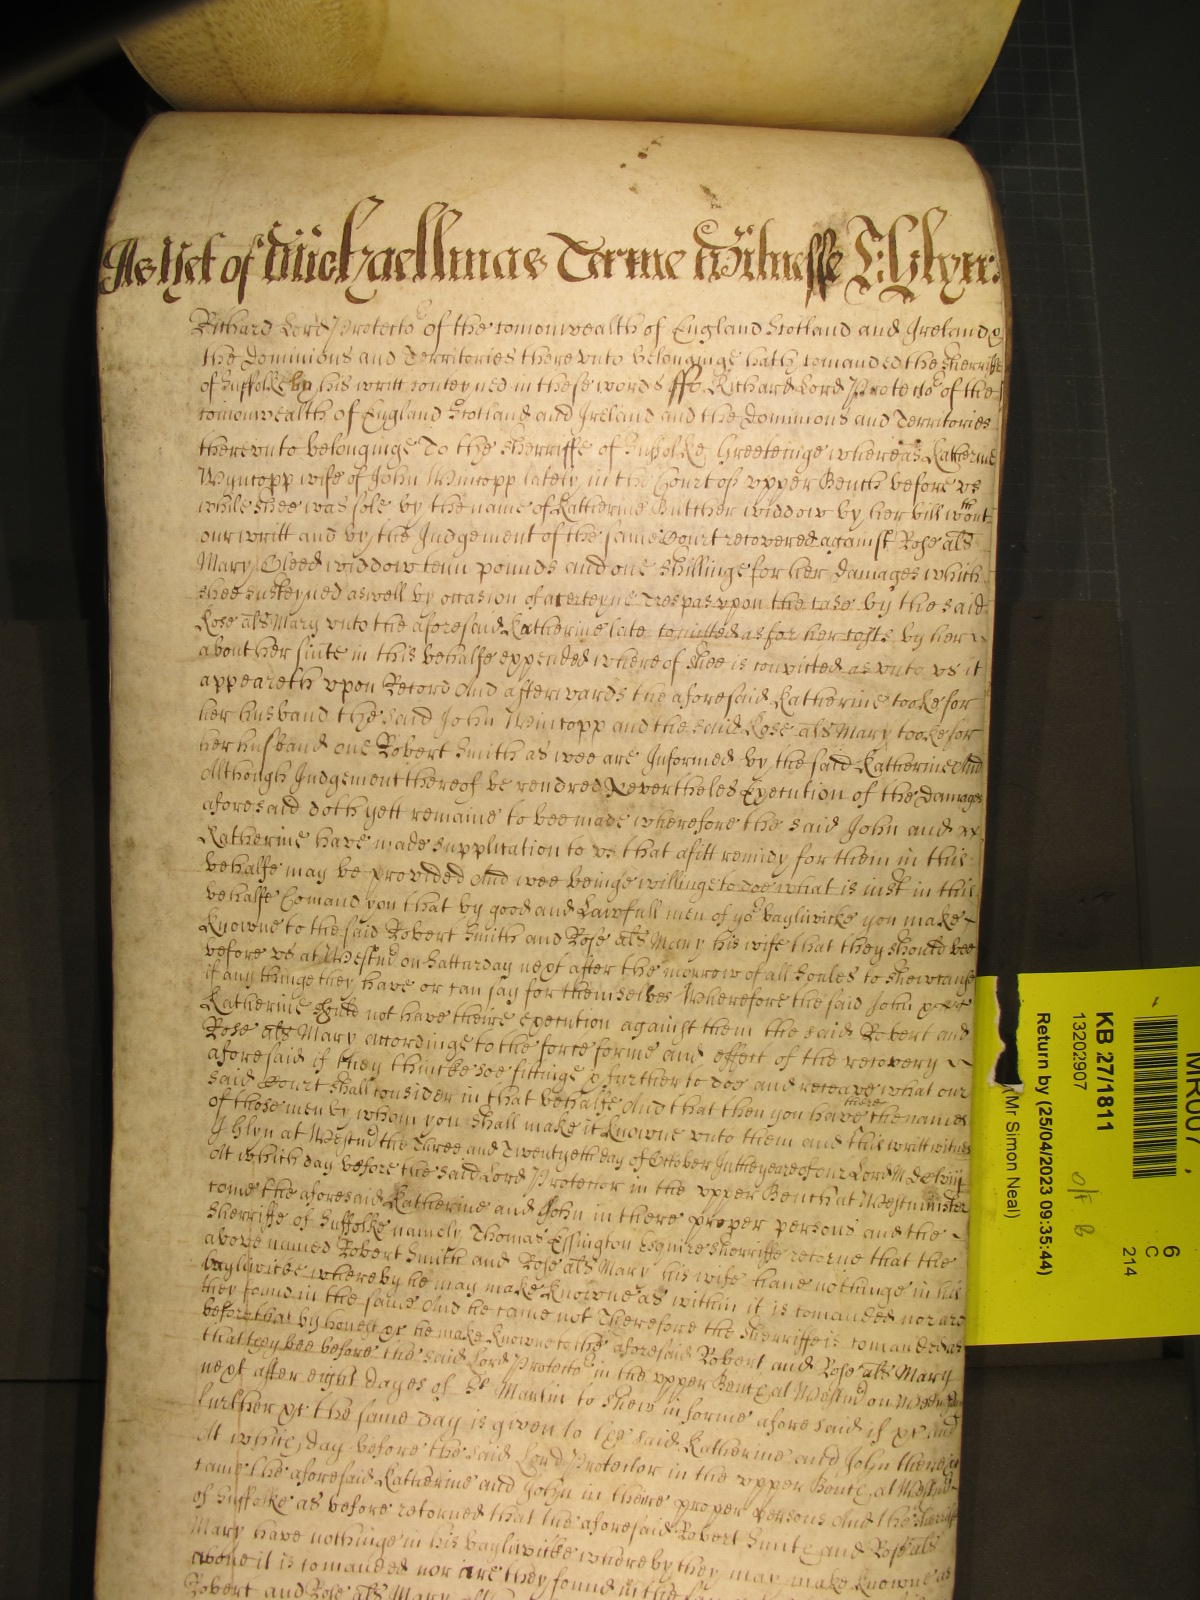 As Yet of Michaellmas Terme Witnesse J: Glyn:
Richard Lord Protector of the comonwealth of England Scotland and Ireland &
the Dominions and Territories there vnto belonginge hath comanded the Sherriffe
of Suffolke by his writt conteyned in these words ss Richard Lord Protector of the
comonwealth of England Scotland and Ireland and the Dominions and Territories
therevnto belonginge To the Sherriffe of Suffolke Greeteinge whereas Katherine
Wyntopp wife of John Wintopp lately in the Court of vpper Bench before vs
while shee was sole by the name of Katherine Butcher widdow by her bill wthout
our writt and by the Judgement of the same Court recovered against Rose als
Mary Gleed widdow tenn pounds and one shillinge for her damages which
shee susteyned aswell by occasion of a certeyne Trespas vpon the case by the said
Rose als Mary vnto the aforesaid Katherine late comitted as for her costs by her
about her suite in this behalfe expended whereof shee is convicted as vnto vs it
appeareth vpon Record And afterwards the aforesaid Katherine tooke for
her husband the said John Wintopp and the said Rose als Mary tooke for
her husband one Robert Smith as wee are Informed by the said Katherine And
Although Judgement thereof be rendred Nevertheles Execution of the Damages
aforesaid doth yett remaine to bee made wherefore the said John and
Katherine have made supplication to vs that a fitt remidy for them in this
behalfe may be provided And wee beinge willinge to doe what is iust in this
behalfe Comand you that by good and Lawfull men of yor bayliwicke you make
knowne to the said Robert Smith and Rose als Mary his wife that they should bee
before vs at Westmr on Satturday next after the morrow of all Soules to shew cause
if any thinge they have or can say for themselves Wherefore the said John &
Katherine should not have theire execution against them the said Robert and
Rose als Mary accordinge to the force forme and effect of the recovery
aforesaid if they thincke soe fittinge & further to doe and receave what our
said Court shall consider in that behalfe And that then you have there the names
of those men by whom you shall make it knowne vnto them and this writt witnes
J Glyn at Westmr the Three and Twentyeth day of October In the yeare of our Lord MDClviij
At which day before the said Lord Protector in the vpper Bench at Westminster
come the aforesaid Katherine and John in there proper persons and the
Sherriffe of Suffolke namely Thomas Essington Esquire Sherriffe retorne that the
above named Robert Smith and Rose als Mary his wife have nothinge in his
bayliwicke whereby he may make knowne as within it is comanded nor are
they found in the same And he came not Therefore the Sherriffe is comanded as
before that by honest &c he make knowne to the aforesaid Robert and Rose als Mary
that they bee before the said Lord Protector in the vpper Bench at Westmr on Wednesday
next after eight dayes of St Martin to shew in forme aforesaid if &c And
further &c the same day is given to the said Katherine and John there &c
At which day before the said Lord Protector in the vpper Bench at Westmr
came the aforesaid Katherine and John in theire proper persons And the Sherriffe
of Suffolke as before retorned that the aforesaid Robert Smith and Rose als
Mary have nothinge in his bayliwicke whereby they may make knowne as
above it is comanded nor are they found in the
Robert and Rose als Mary
MR007
6
C
214
KB 27/1811
13202907
Return by (25/04/2023 09:35:44)
(Mr Simon Neal)